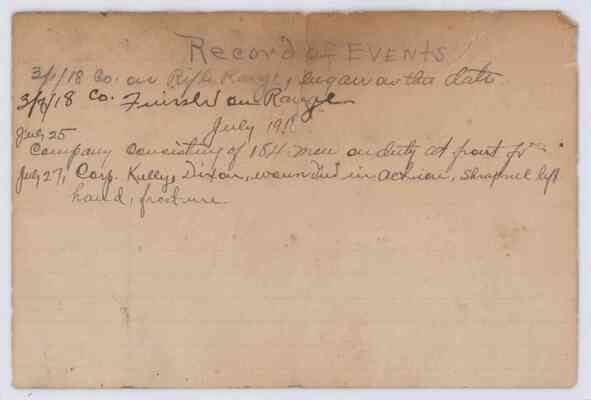 Record of EVENTS
3/1/18 Co. on Rifle Range, began on this date
3/7/18 Co. Finish'd on Range
July 1918
July 25
Company consisting of 184 men on duty at front
July 27, Corp. Kelly, Dixon, wounded in action, shrapnel left
hand, fracture